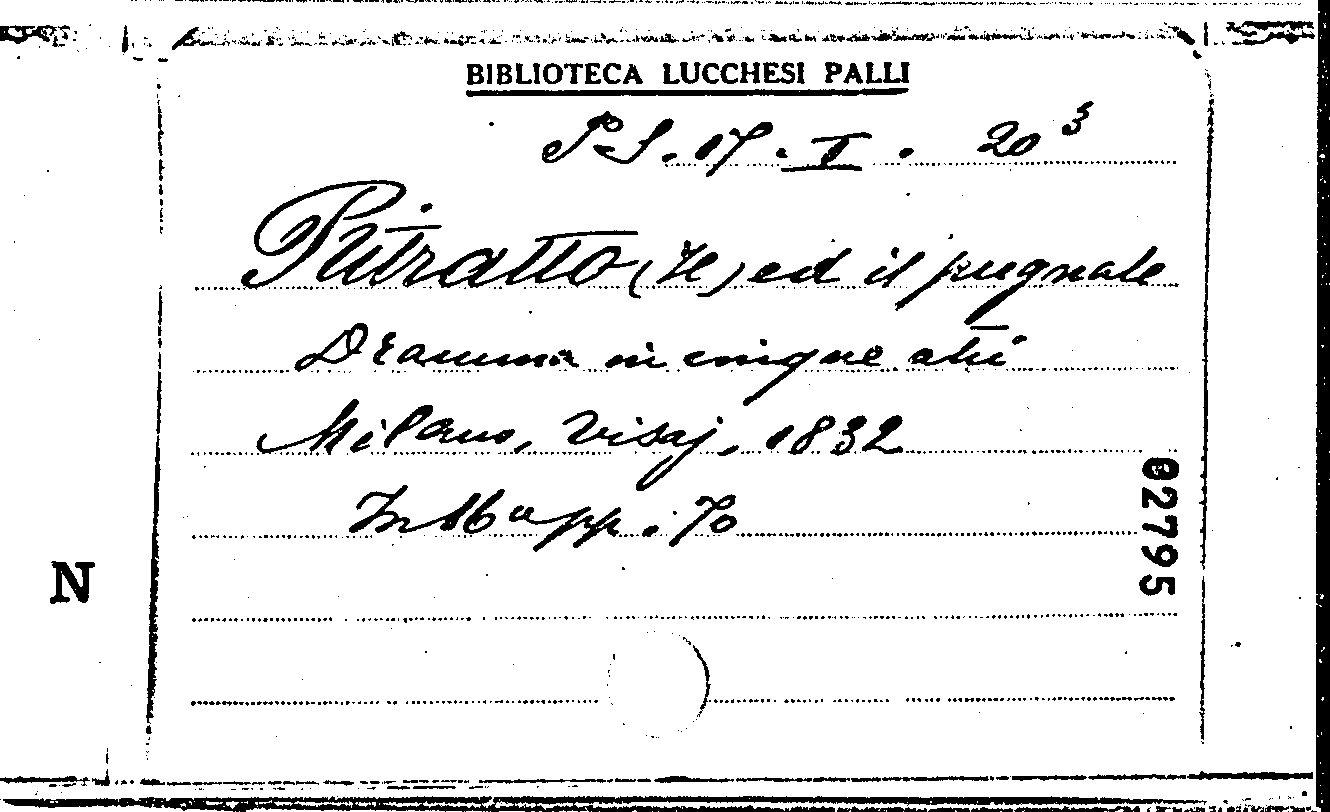 BIBLIOTECA LUCCHESI PALLI
P.S. 17. I. 20 3
Ritratto (Il) ed il pugnale
Dramma in cinque atti
Milano, Visaj, 1832
In 16° pp. 70
02795
N